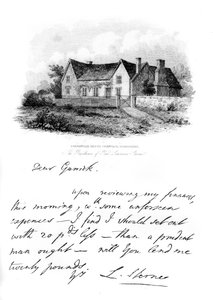 Dear Garrick.
upon reviewing my finances
this morning, wth some unforseen
expences — I find I should set out
with 20 pds less — than a prudent
man ought — will you lend me
twenty pounds.
Yrs L. Sterne